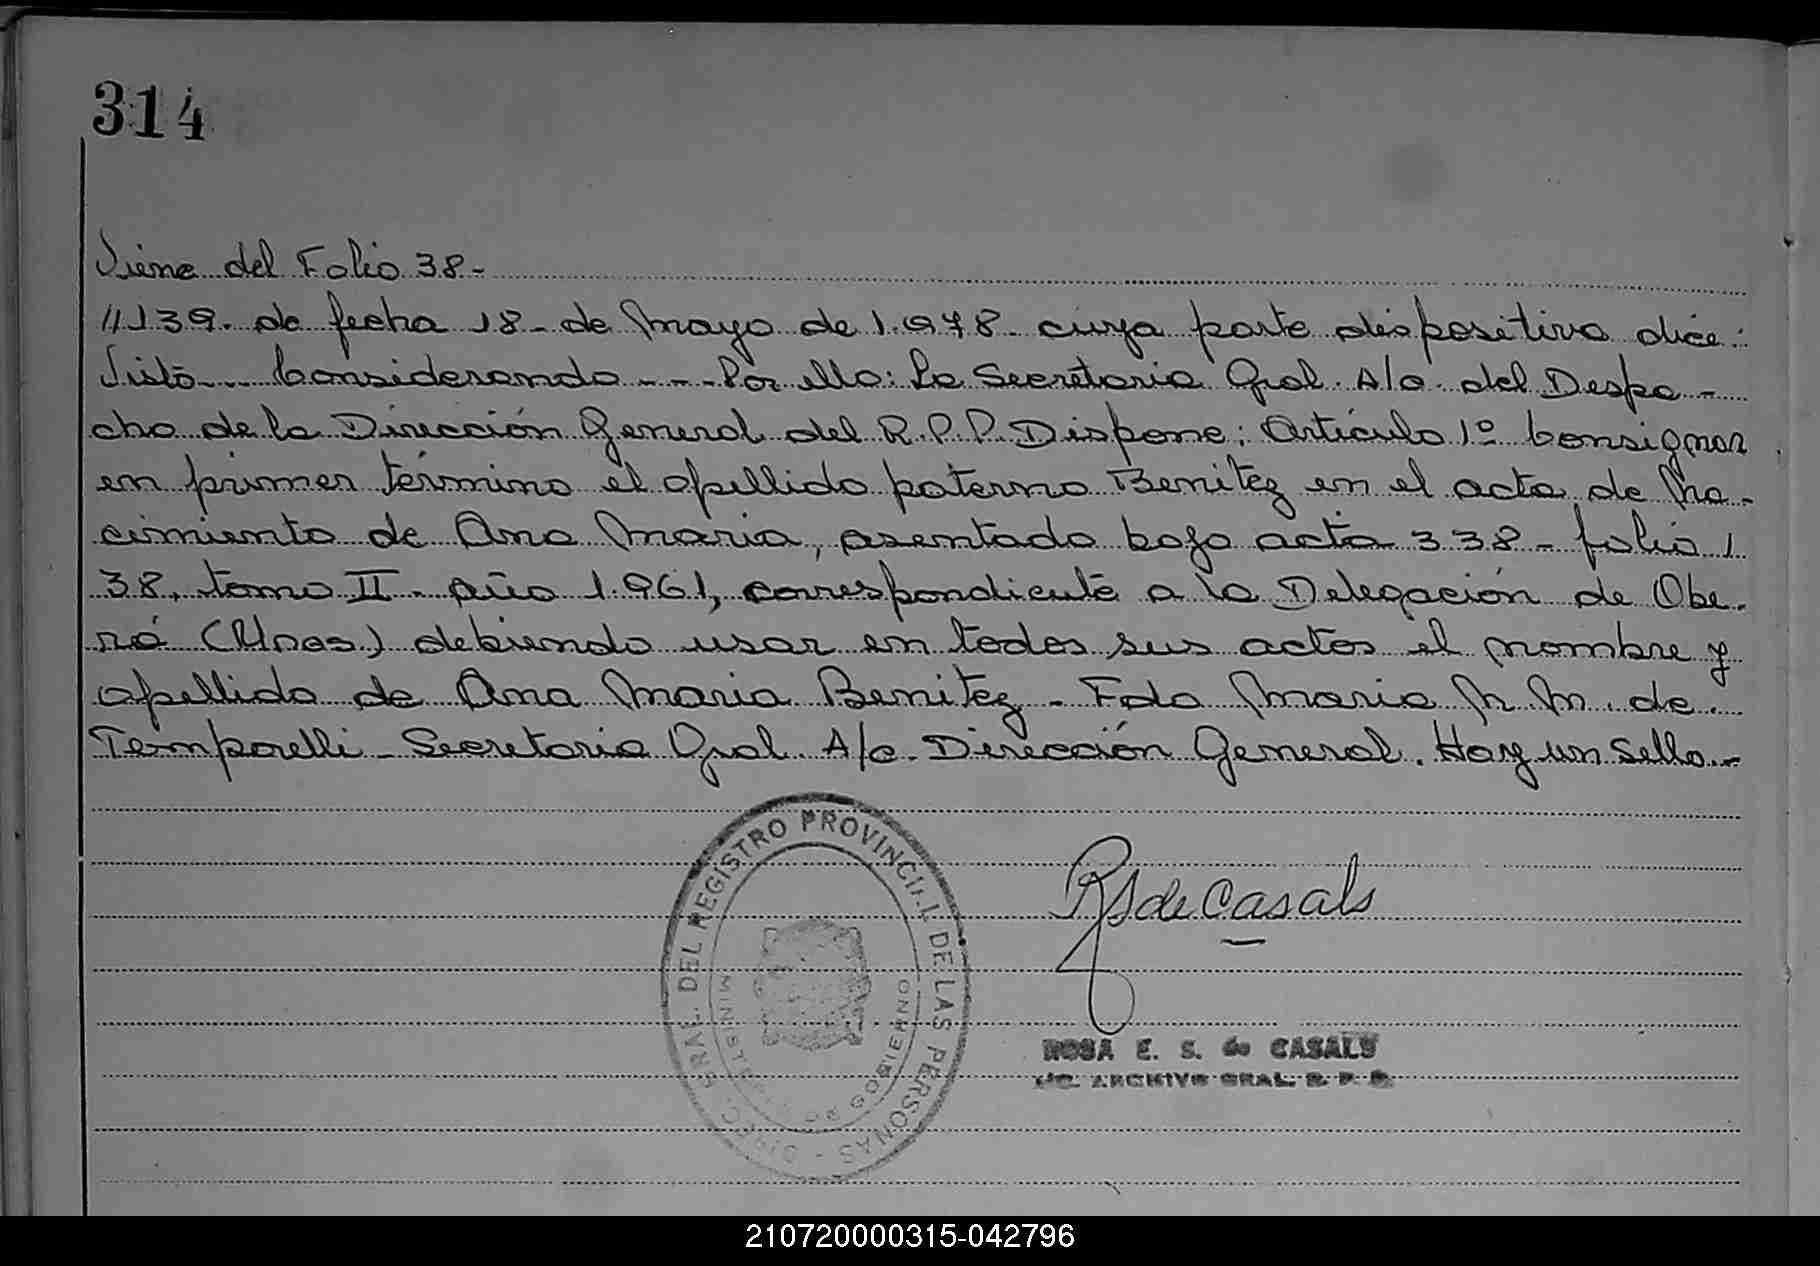 314
Viene del Folio 38-
//139. de fecha 18- de Mayo de 1.978- cuya parte dispositiva dice:
Visto... Considerando - - - Por ello: La Secretaria Gral. A/c. del Despa-
cho de la Dirección General del R.P.P. Dispone: Artículo 1º Consignar
en primer término el apellido paterno Benitez en el acta de Na-
cimiento de Ana Maria, asentado bajo acta 338- folio 1
38, tomo II- año 1.961, correspondiente a la Delegación de Obe-
rá (Mnes.) debiendo usar en todos sus actos el nombre y
apellido de Ana Maria Benitez - Fdo Maria N. M. de
Temporelli - Secretaria Gral. A/c. Dirección General. Hay un sello.-
DIREC. GRAL. DEL REGISTRO PROVINCIAL DE LAS PERSONAS -
MINISTERIO DE GOBIERNO
RS de Casals
ROSA E. S. de CASALS
ARCHIVO GRAL. R. P. P.
210720000315-042796